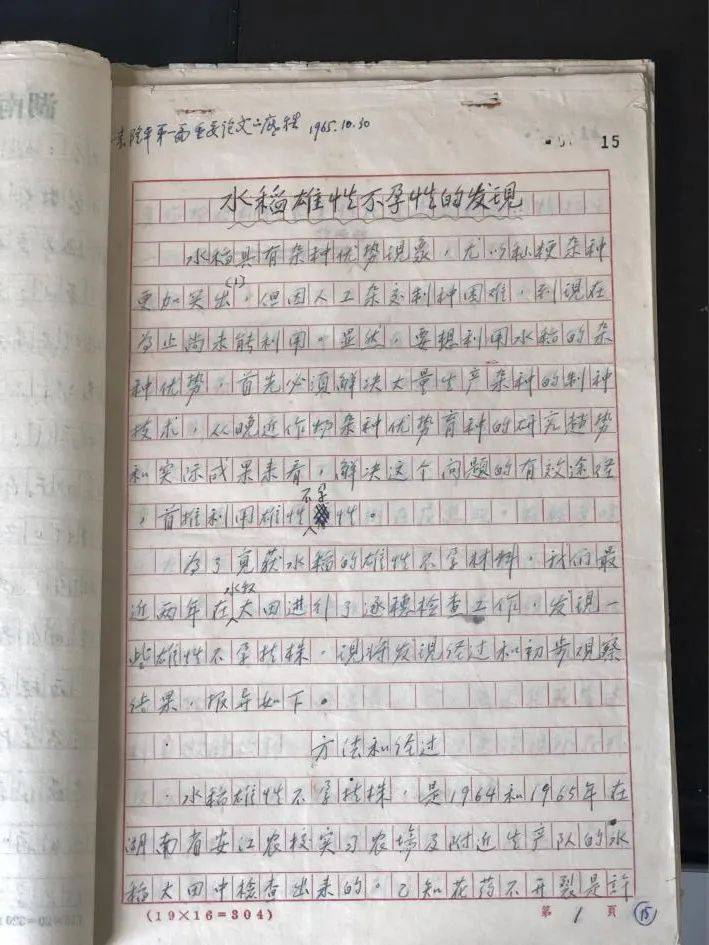 湖南
袁隆平第一篇重要论文之底稿 1965.10.30
15
水稻雄性不孕性的发现
水稻具有杂种优势现象,尤以籼粳杂种
更加突出(1),但因人工杂交制种困难,到现在
为止尚未能利用。显然,要想利用水稻的杂
种优势,首先必须解决大量生产杂种的制种
技术,从晚近作物杂种优势育种的研究趋势
和实际成果来看,解决这个问题的有效途径
,首推利用雄性不孕性。
为了觅获水稻的雄性不孕材料,我们最
近两年在水稻大田进行了逐穗检查工作,发现一
些雄性不孕植株,现将发现经过和初步观察
结果,报导如下。
方法和经过
水稻雄性不孕植株,是1964和1965年在
湖南省安江农校实习农场及附近生产队的水
稻大田中检查出来的。已知花药不开裂是許
(19×16=304)
第 1 頁
15